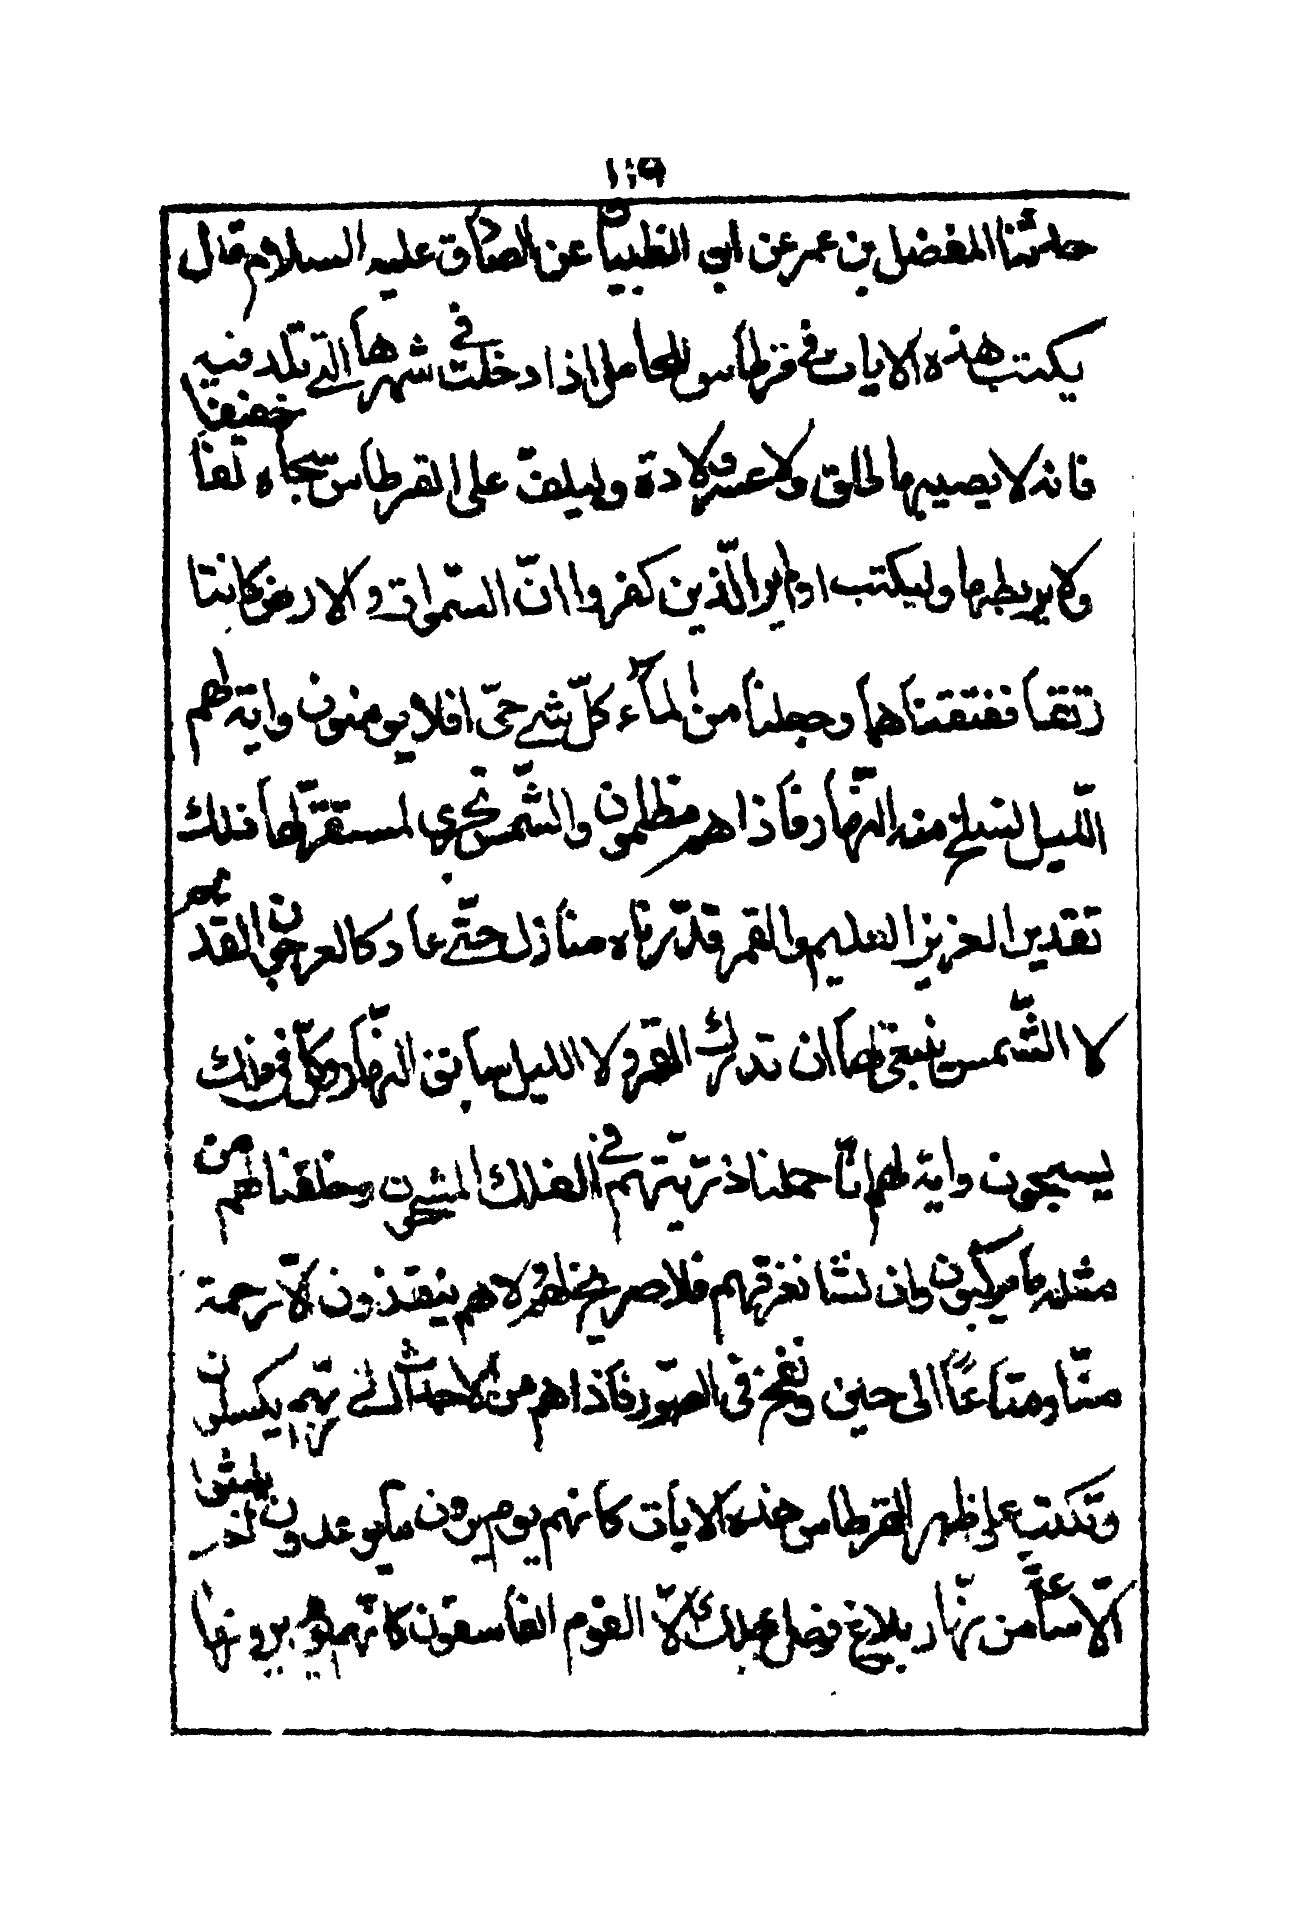 ١٠٩
حدثنا المفضل بن عمر عن ابي الظبيان عن الصادق عليه السلام قال
يكتب هذه الايات في قرطاس للحامل اذا دخلت في شهرها التي تلد فيه
فانه لا يصيبها طلق ولا عسر ولادة وليلف على القرطاس سحاه لفا خفيفا
ولا يربطها وليكتب اولم ير الذين كفروا ان السموات والارض كانتا
رتقا ففتقناهما وجعلنا من الماء كل شي حي افلا يومنون واية لهم
الليل نسلخ منه النهار فاذا هم مظلمون والشمس تجري لمستقر لها ذلك
تقدير العزيز العليم والقمر قدرناه منازل حتى عاد كالعرجون القديم
لا الشمس ينبغي لها ان تدرك القمر ولا الليل سابق النهار وكل في فلك
يسبحون واية لهم انا حملنا ذريتهم في الفلك المشحون وخلقنا لهم من
مثله ما يركبون وان نشا نغرقهم فلا صريخ لهم ولا هم ينقذون الا رحمة
منا ومتاعا الى حين ونفخ في الصور فاذا هم من الاجداث الى ربهم ينسلون
وتكتب على ظهر القرطاس هذه الايات كانهم يوم يرون ما يوعدون لم يلبثوا
الا ساعة من نهار بلاغ فهل يهلك الا القوم الفاسقون كانهم يوم يرونها